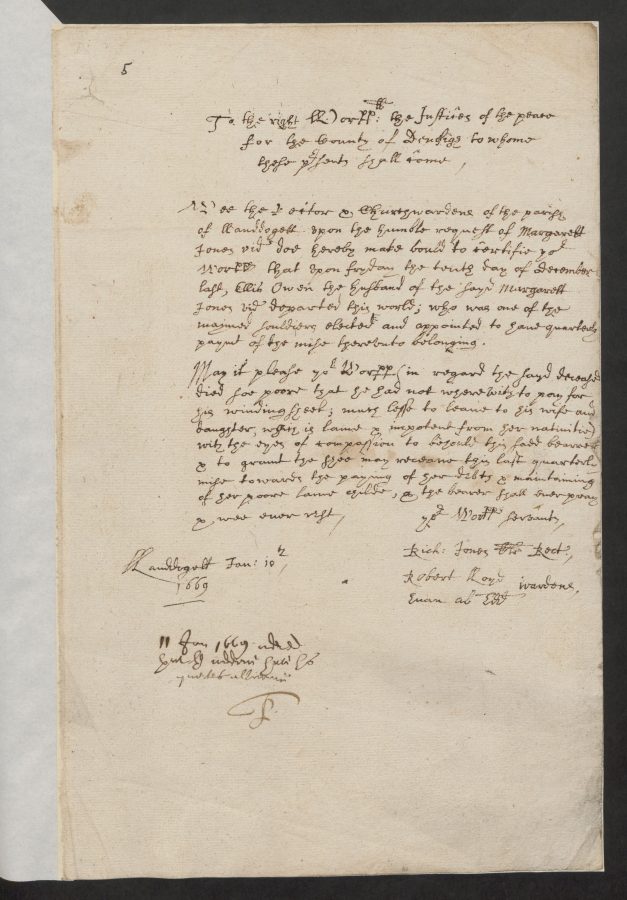 5
To the right Worpp:ll the Justices of the peace
for the County of Denbigh to whome
these p'sents shall come,
Wee the Rector & Churchwardens of the parish
of llanddogett upon the humble request of Margarett
Jones vid' doe hereby make bould to certifie yor
Worpps that upon fryday the tenth day of december
last Ellis Owen the husband of the sayd Margarett
Jones vid' departed this world; who was one of the
maymed souldiers elected and appointed to have quarterly
paymt of the mise thereunto belonging.
May it please yor Worpps (in regard the sayd deceased
died soe poore that he had not wherewith to pay for
his winding sheet; much lesse to leave to his wife and
daughter, which is lame & impotent from her nativitie)
with the eyes of compassion to behould this sad bearer
& to grant that shee may receave this last quarterly
mise towards the paying of her debts & maintaining
of her poore lame childe, & the bearer shall ever pray
& wee ever rest,
yor Worpps servants,
Rich: Jones Rect.,
Llanddogett Jan: 10th,
1669
Robert lloyd wardens,
Evan ab Edd
11 Jan 1669